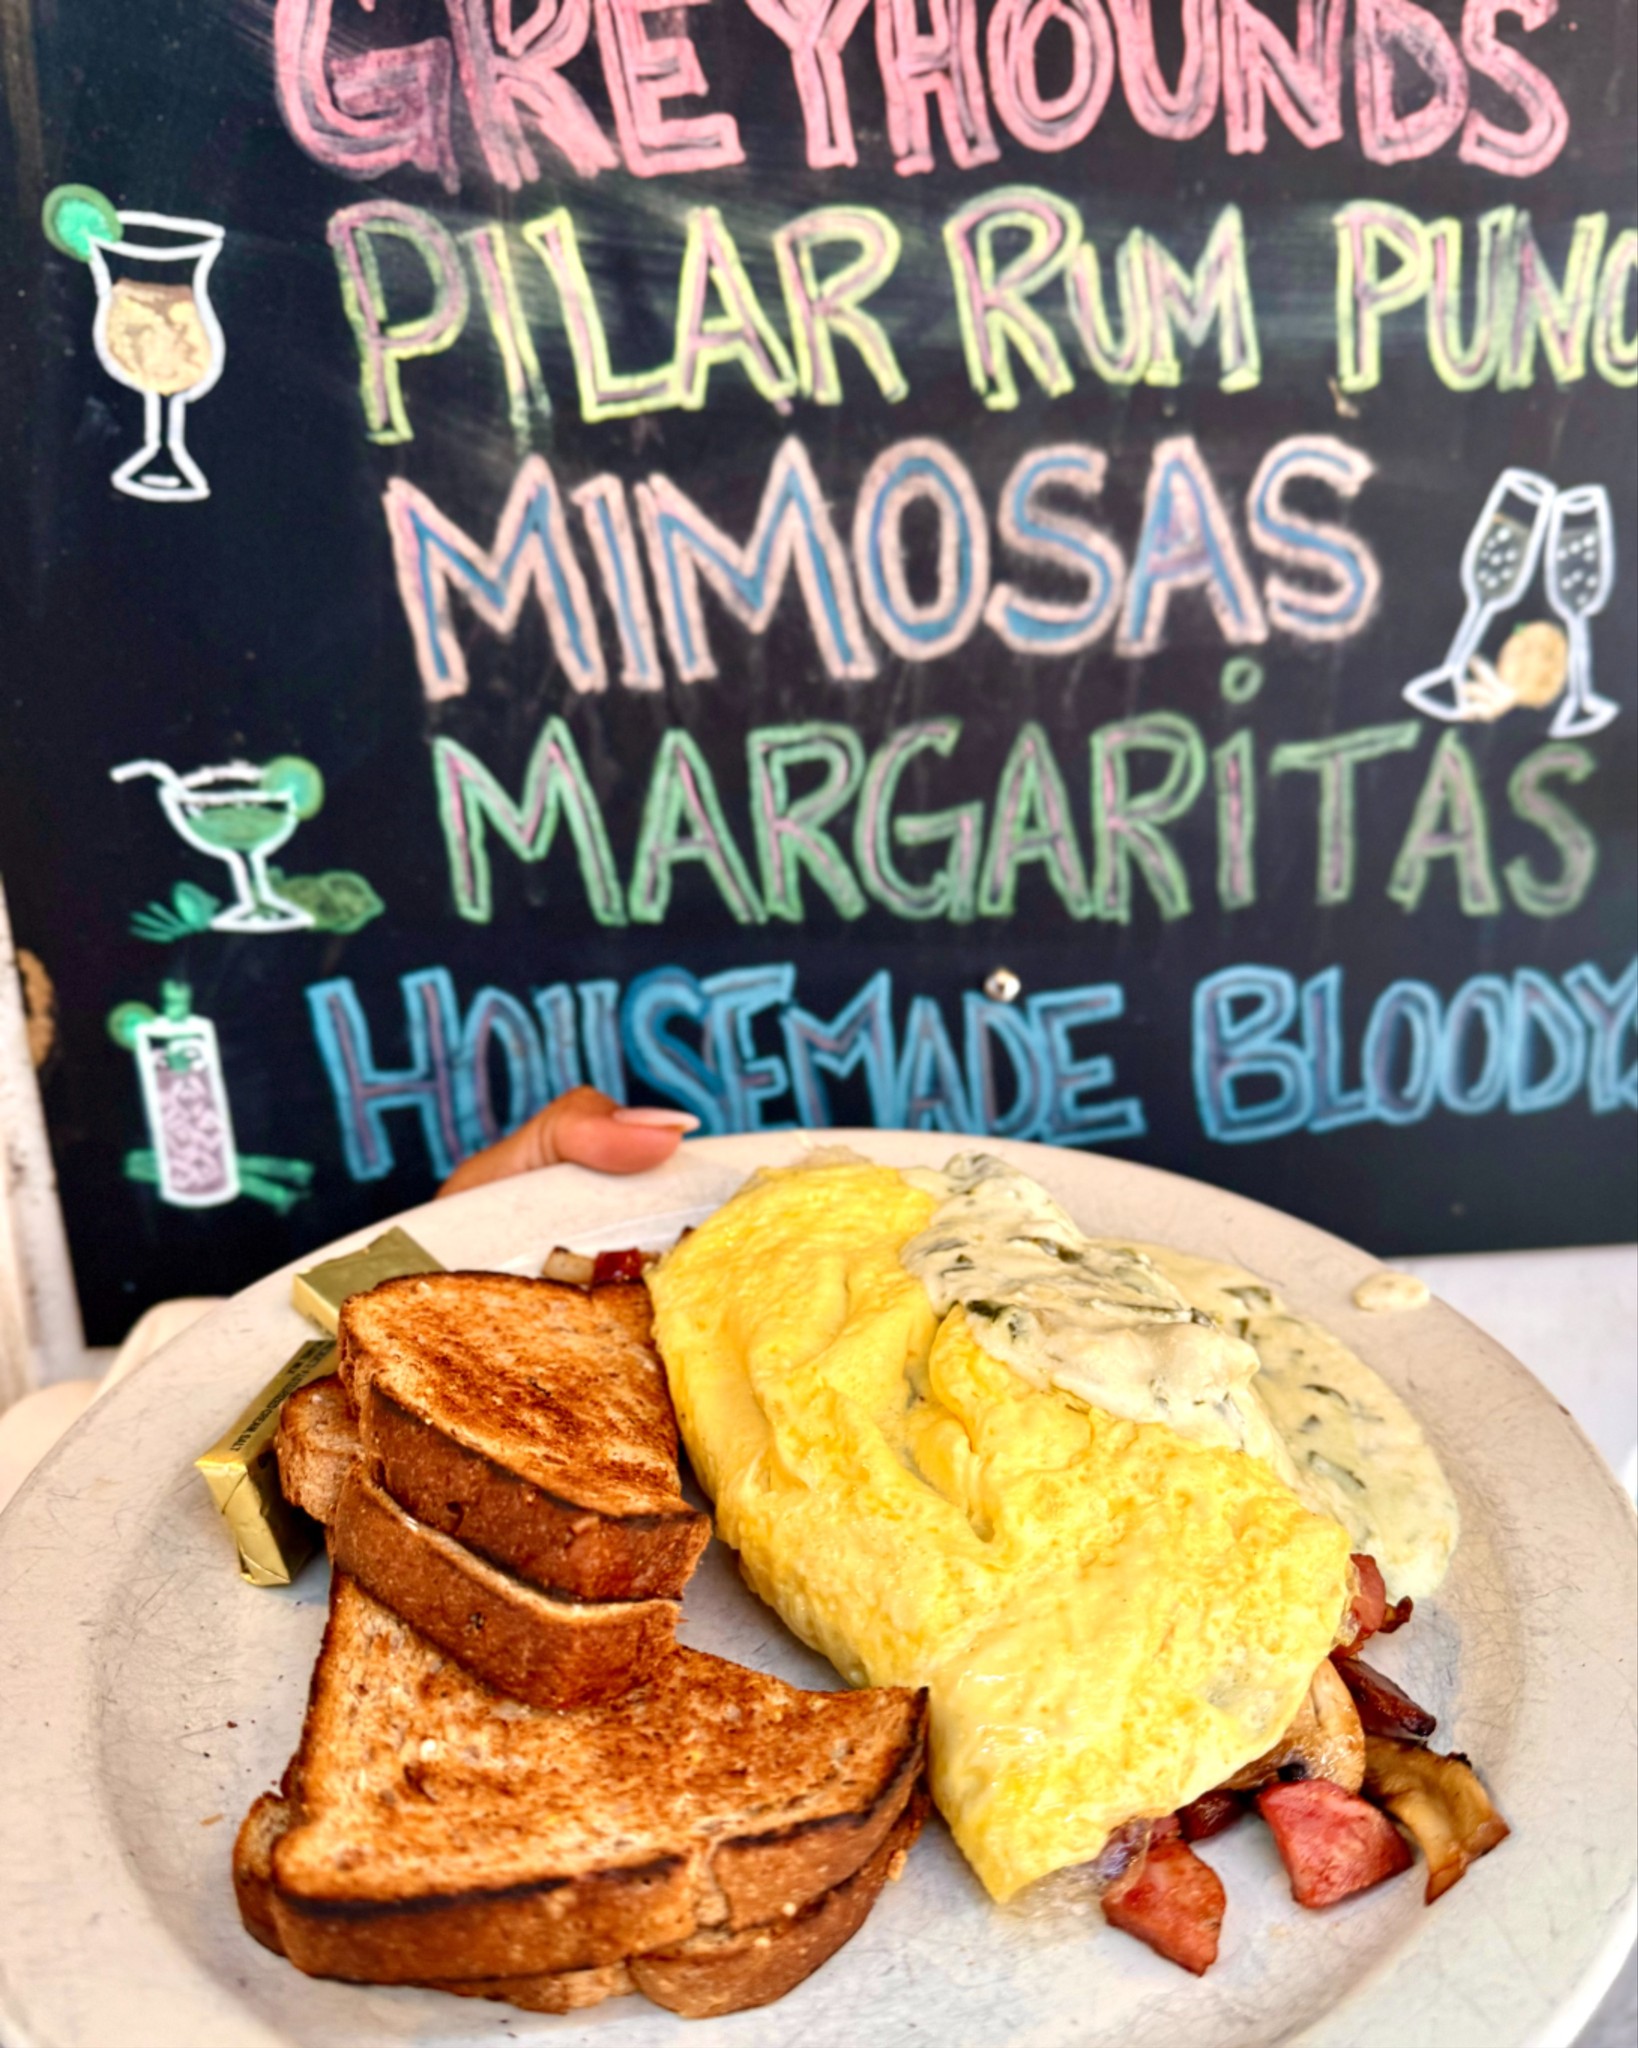 GREYHOUNDS
PILAR RUM PUNC
MIMOSAS
MARGARiTAS
HOUSEMADE BLOODYS
SALT